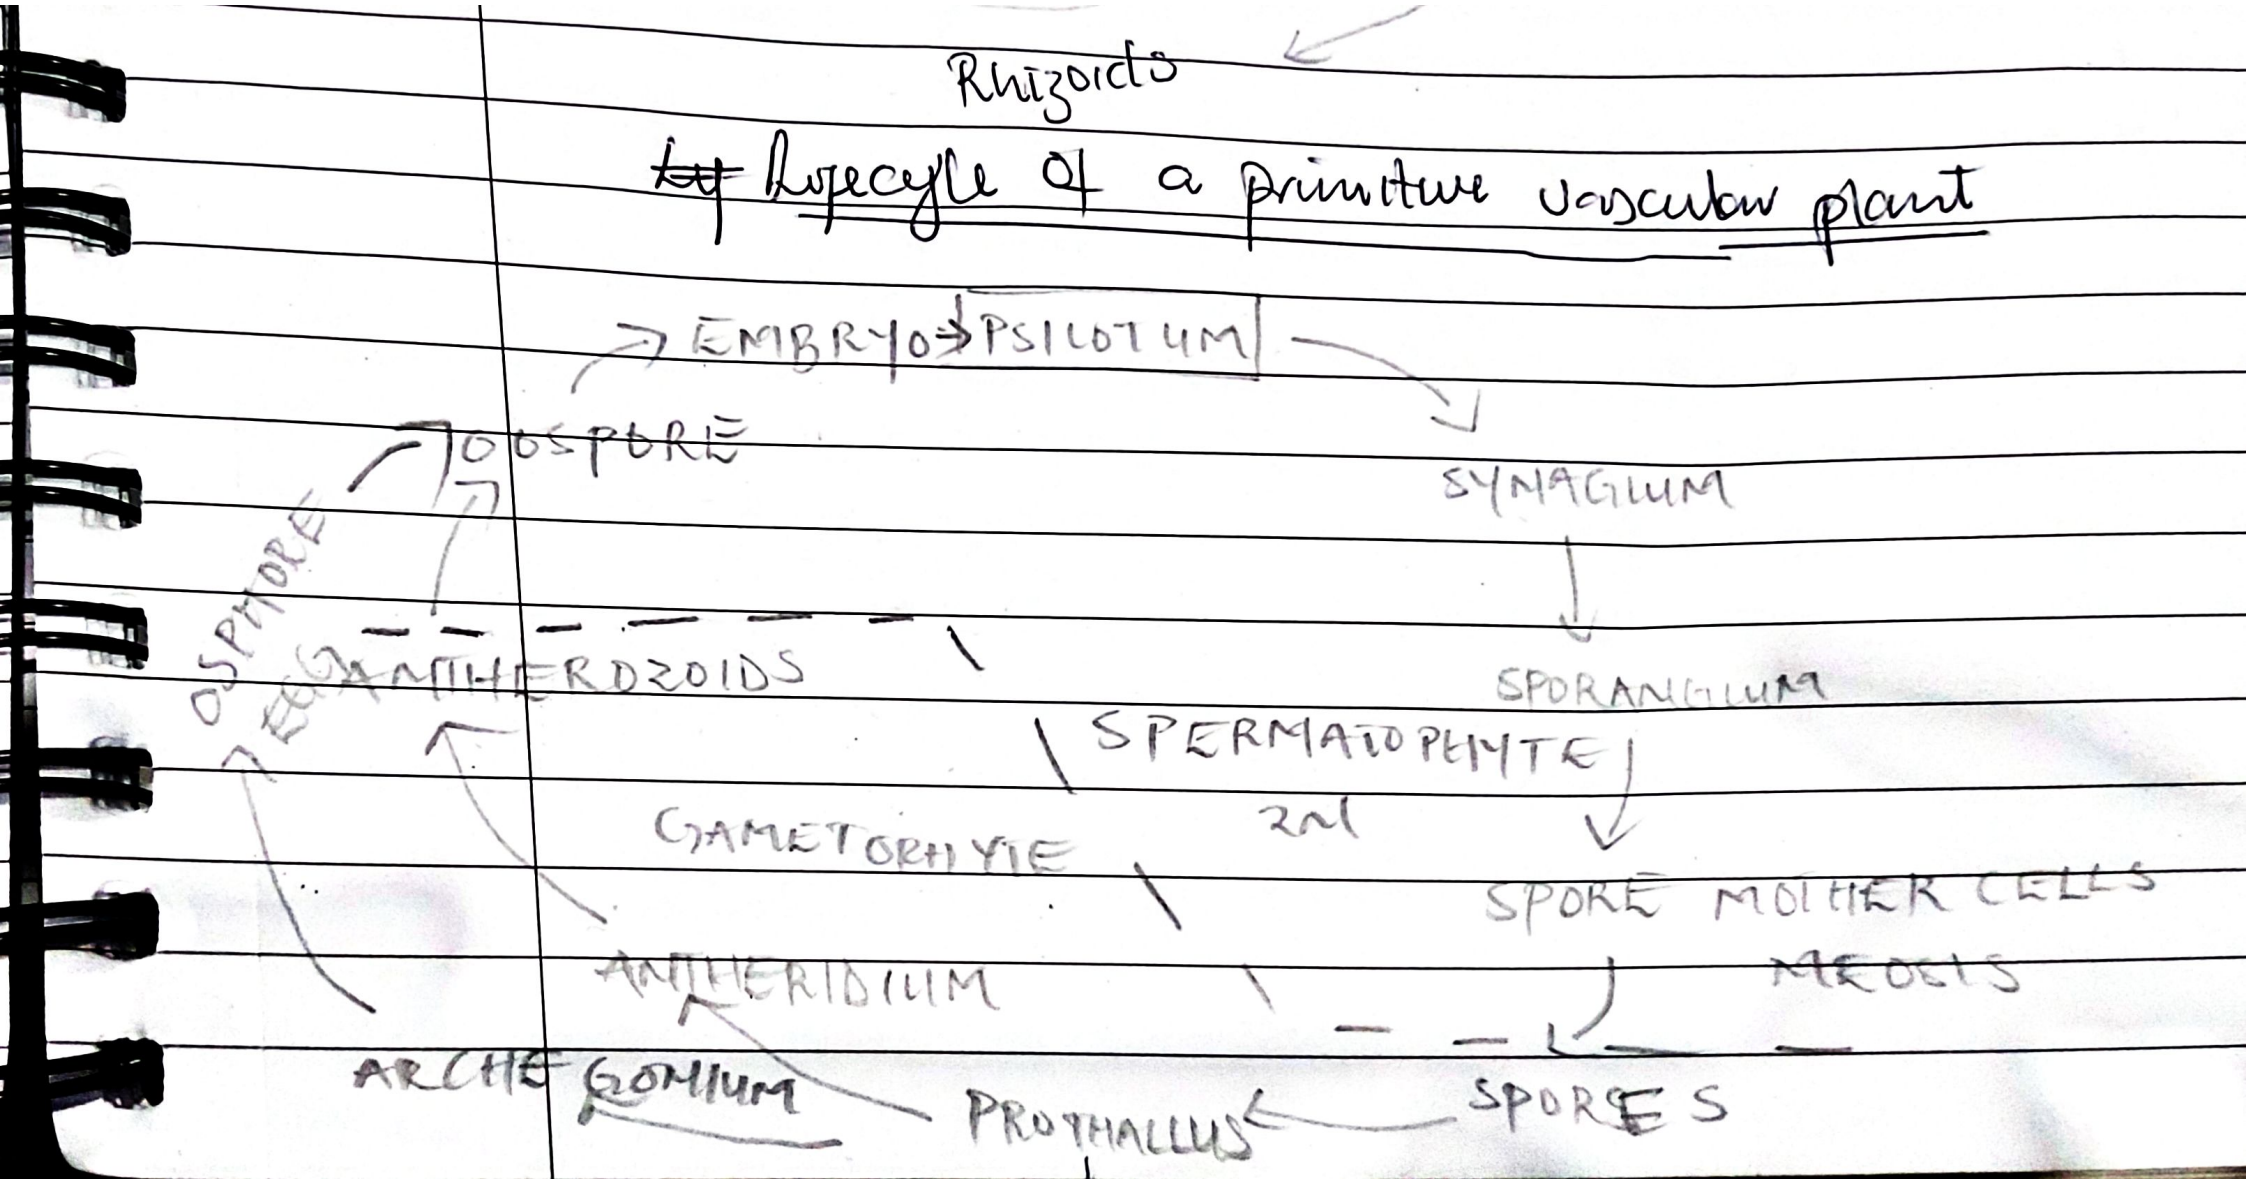 Rhizoids
Lifecycle of a primitive vascular plant
EMBRYO → PSILOTUM
OOSPORE
SYNAGIUM
OSPHORE
EGG
ANTHEROZOIDS
SPORANGIUM
SPERMATOPHYTE
GAMETOPHYTE
2N
SPORE MOTHER CELLS
ANTHERIDIUM
MEOSIS
ARCHEGONIUM
PROTHALLUS
SPORES